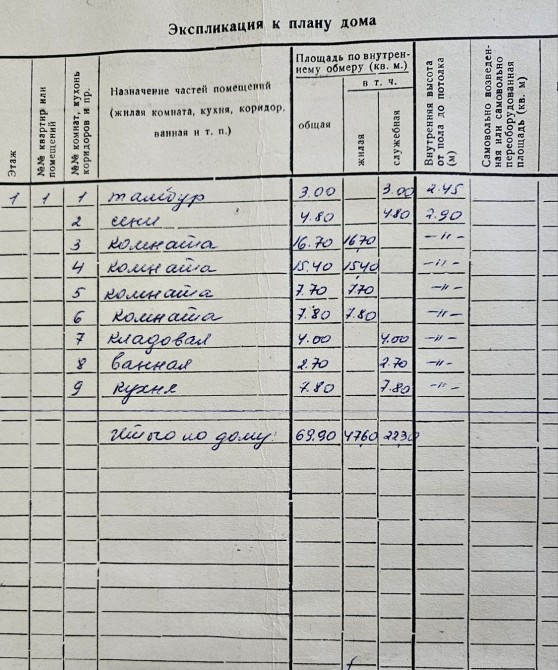 Экспликация к плану дома
Этаж
№№ квартир или помещений
№№ комнат, кухонь коридоров и пр.
Назначение частей помещений
(жилая комната, кухня, коридор,
ванная и т. п.)
Площадь по внутрен-
нему обмеру (кв. м.)
общая
в т. ч.
жилая
служебная
Внутренняя высота от пола до потолка (м)
Самовольно возведен-
ная или самовольно
переоборудованная
площадь (кв. м)
1 1 1 тамбур 3.00 3.00 2.45
2 сени 4.80 4.80 2.90
3 комната 16.70 16.70 —"—
4 комната 15.40 15.40 —"—
5 комната 7.70 7.70 —"—
6 комната 7.80 7.80 —"—
7 кладовая 4.00 4.00 —"—
8 ванная 2.70 2.70 —"—
9 кухня 7.80 7.80 —"—
Итого по дому: 69.90 47.60 22.30